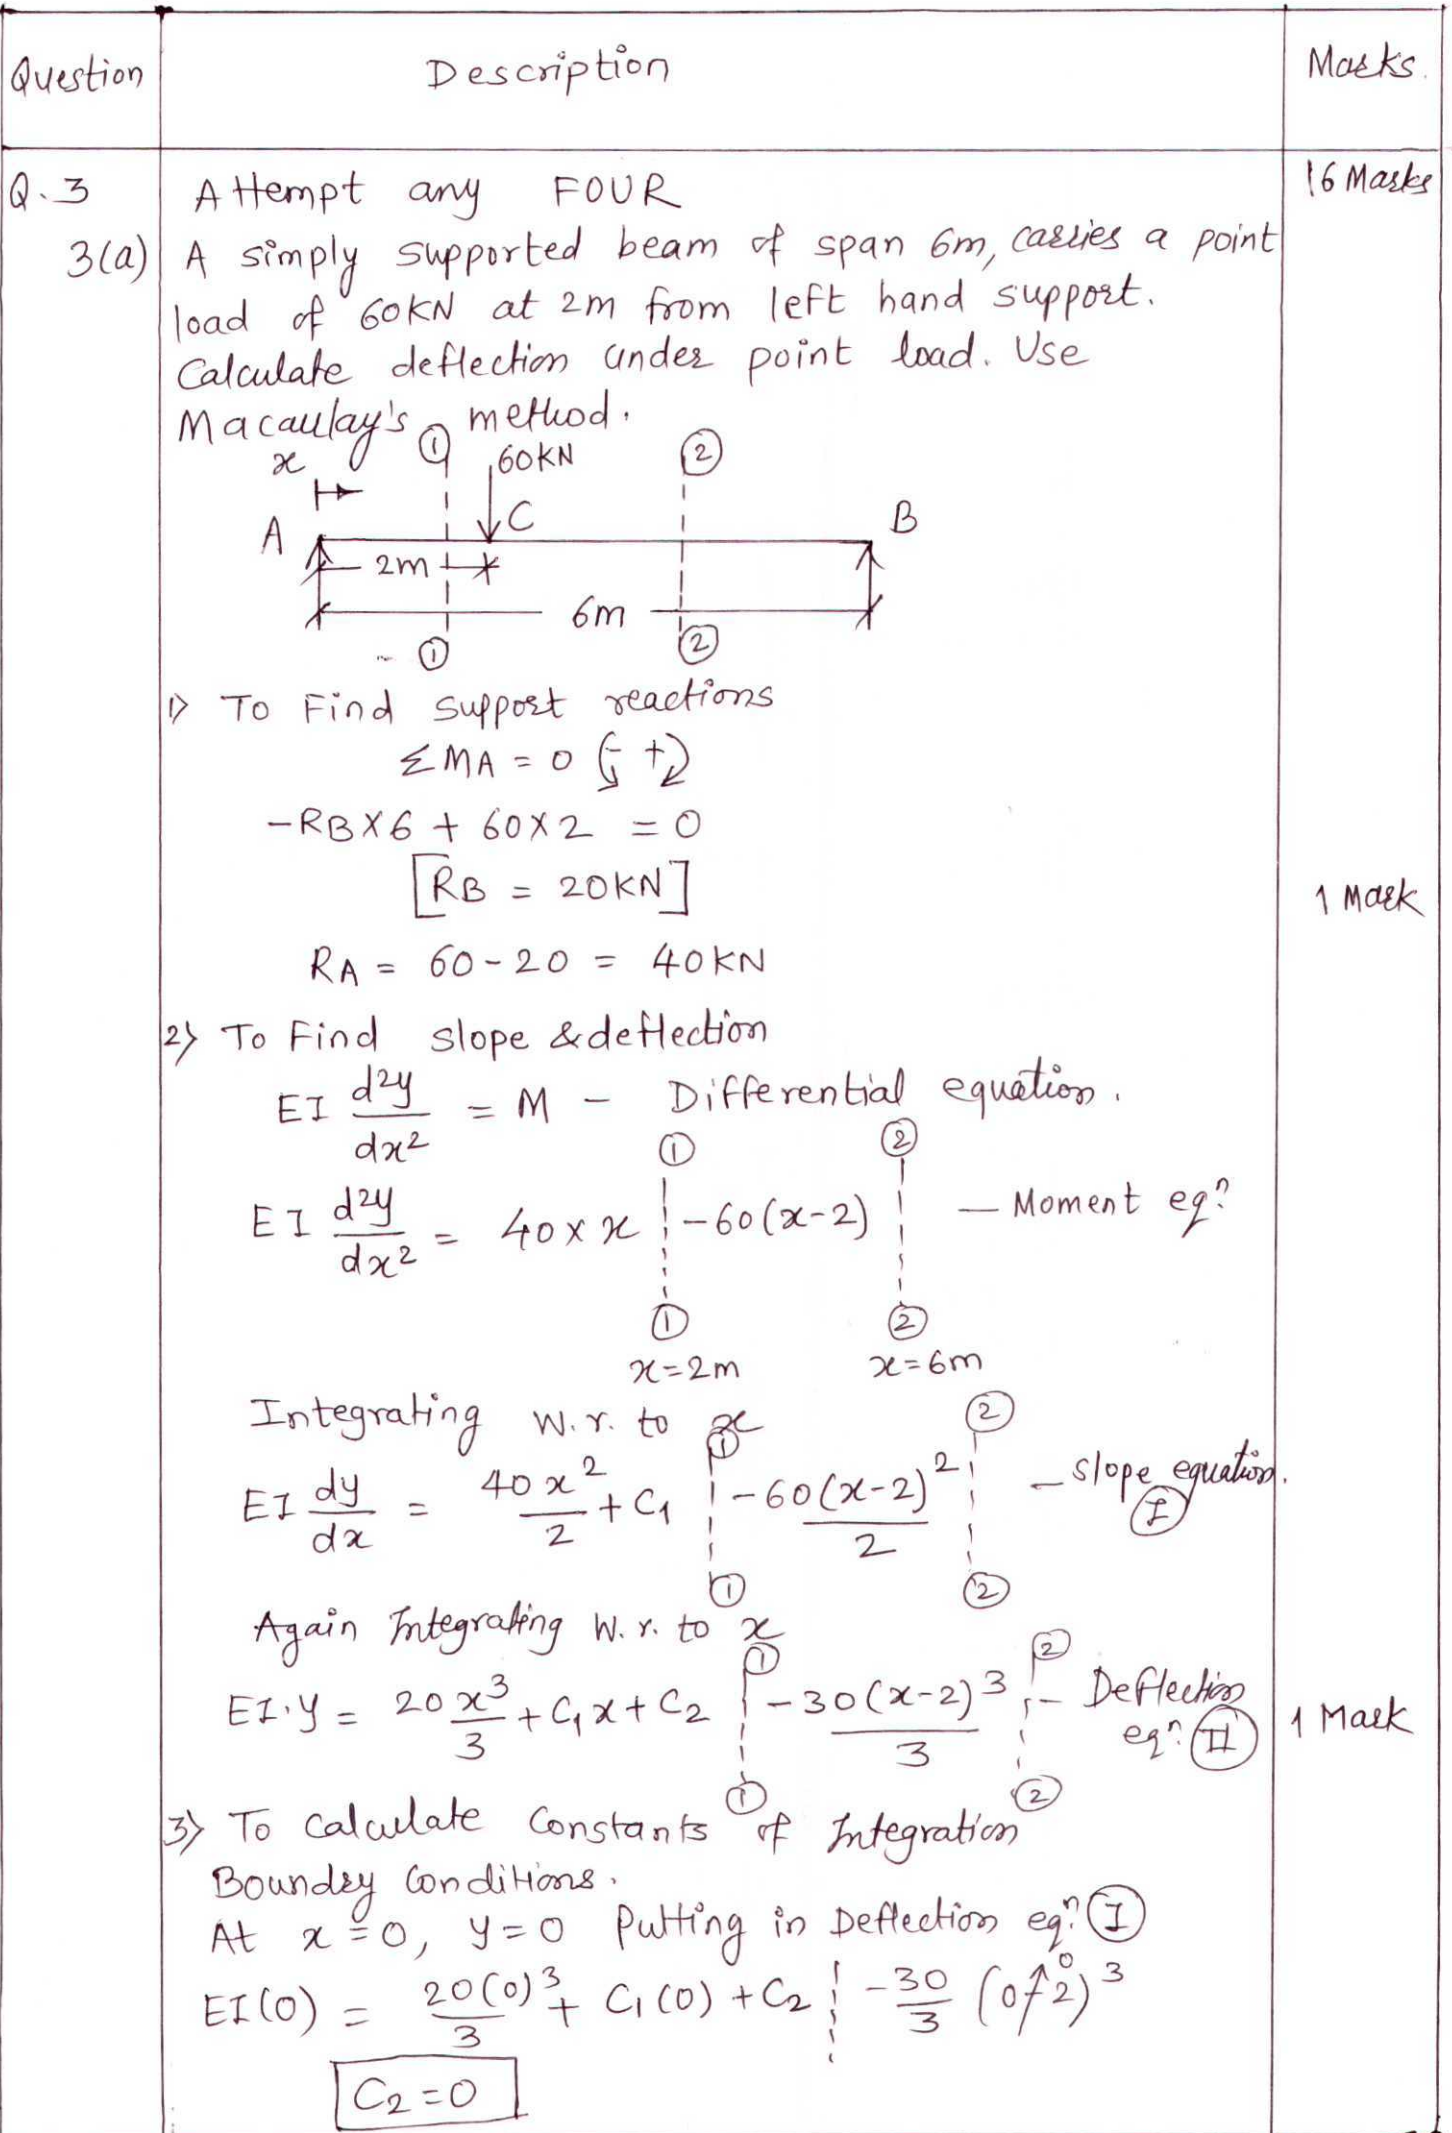 Question Description Marks.
Q.3 Attempt any FOUR 16 Marks
3(a) A simply supported beam of span 6m, carries a point
load of 60KN at 2m from left hand support.
Calculate deflection under point load. Use
Macaulay's method.
x ① 60KN ②
A C B
2m
6m
① ②
1) To Find support reactions
ΣMA = 0 (- +)
-RB×6 + 60×2 = 0
[RB = 20KN] 1 Mark
RA = 60-20 = 40KN
2) To Find slope & deflection
EI d²y/dx² = M - Differential equation.
① ②
EI d²y/dx² = 40×x ¦ -60(x-2) ¦ — Moment eqn
① ②
x=2m x=6m
Integrating w.r. to x
① ②
EI dy/dx = 40x²/2 + C1 ¦ -60(x-2)²/2 ¦ — slope equation. Ⓘ
① ②
Again Integrating w.r. to x
① ②
EI.y = 20x³/3 + C1x + C2 ¦ -30(x-2)³/3 ¦ - Deflection eqn. Ⅱ 1 Mark
① ②
3) To calculate constants of Integration
Boundry conditions.
At x=0, y=0 Putting in Deflection eqn. Ⓘ
EI(0) = 20(0)³/3 + C1(0) + C2 ¦ -30/3 (0-2)³ 0
C2=0